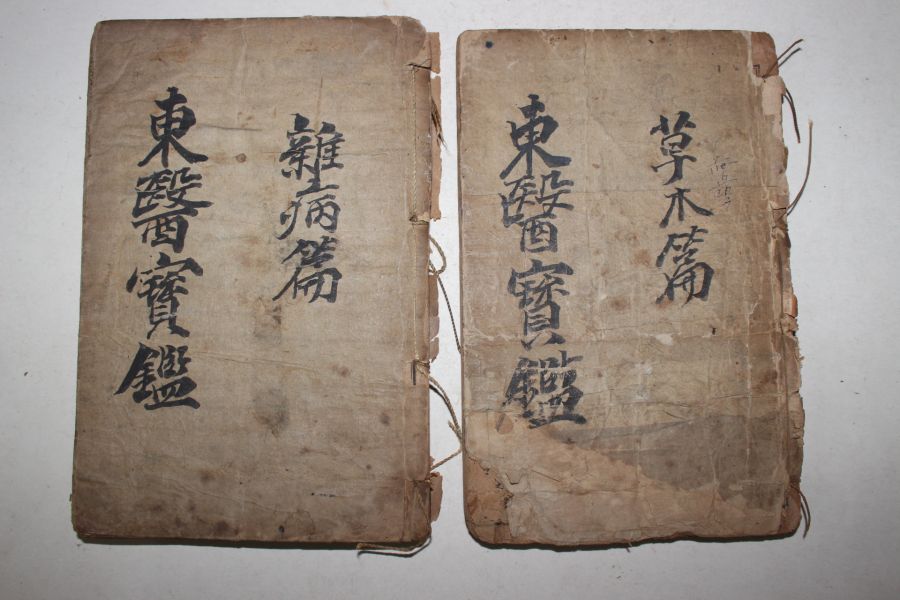 東醫寶鑑
雜病篇
東醫寶鑑
草木篇